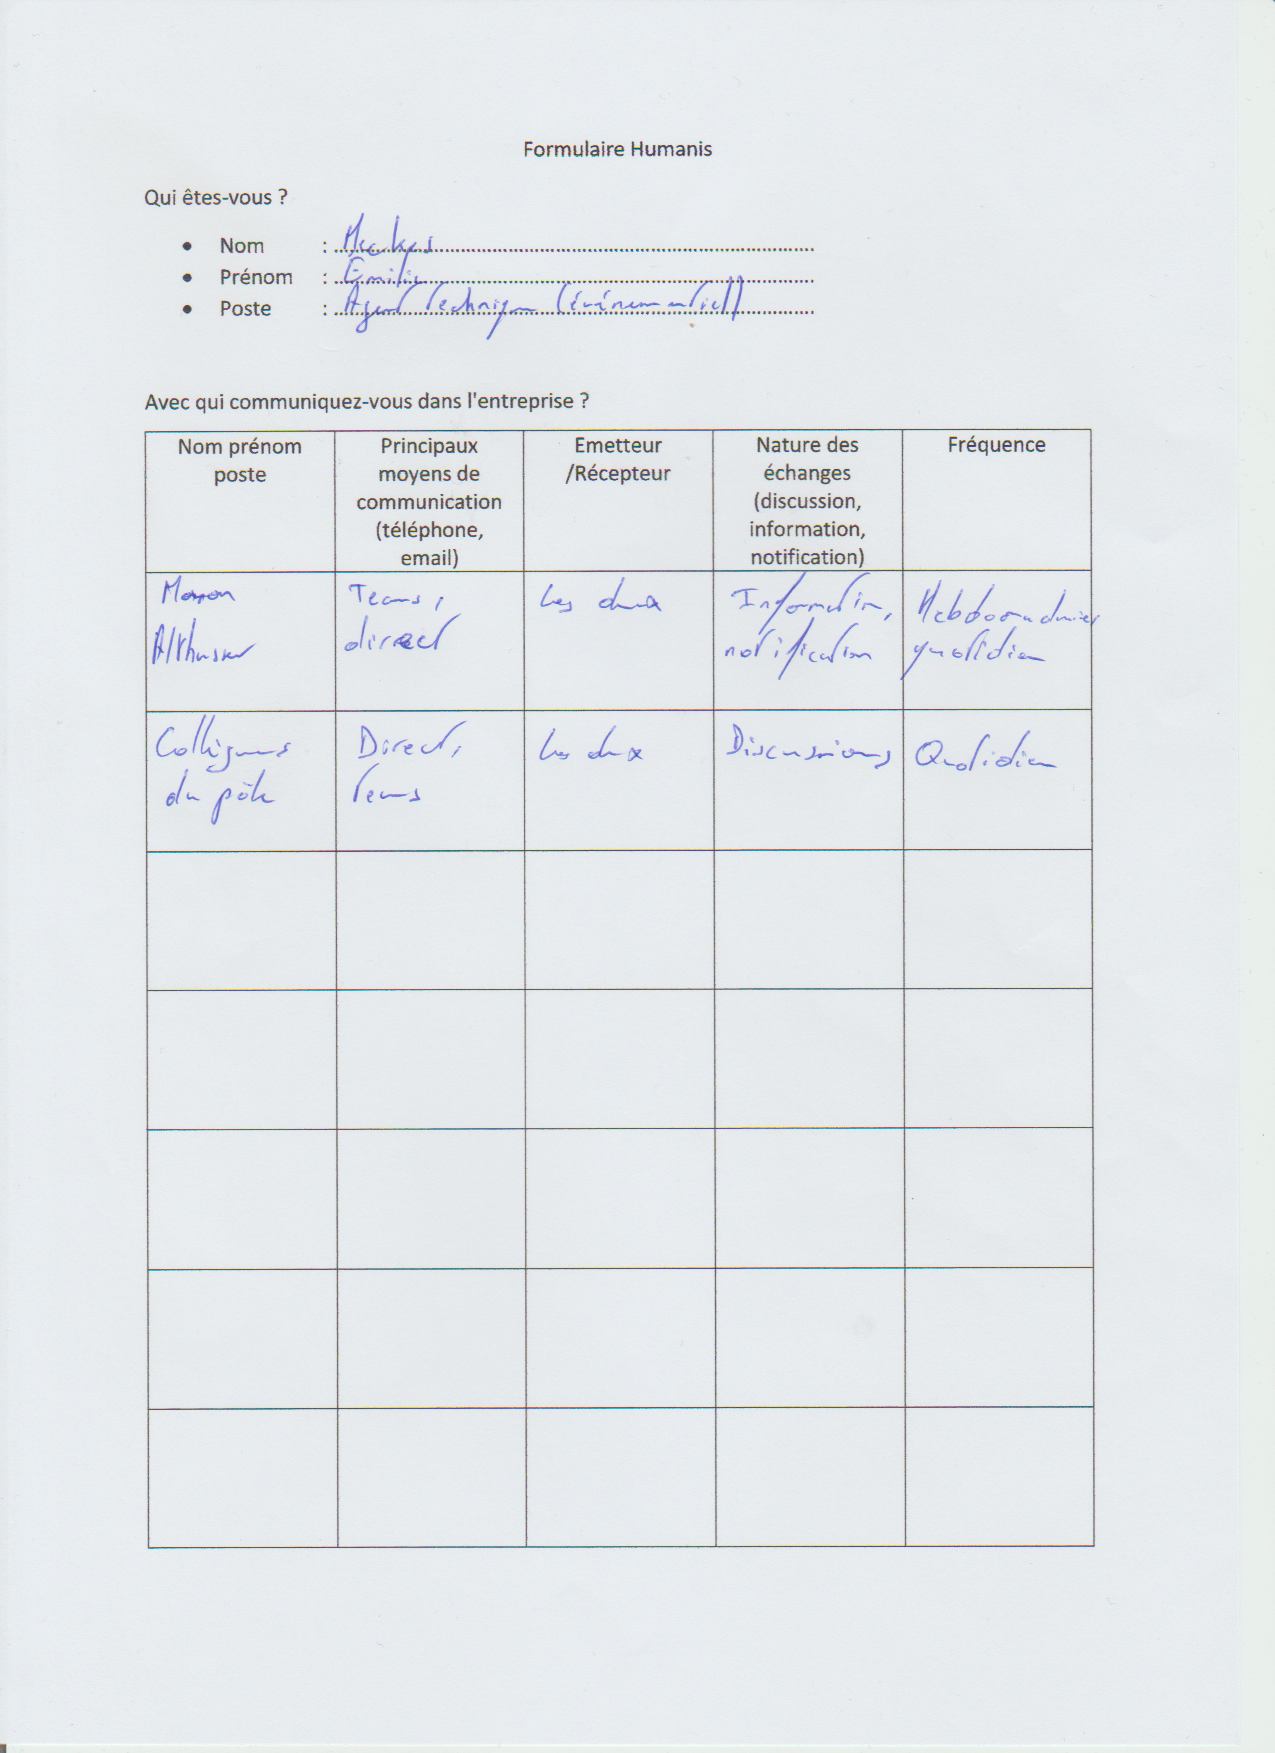 Formulaire Humanis
Qui êtes-vous ?
• Nom :
• Prénom : Emilie
• Poste : Agent technique (événementiel)
Avec qui communiquez-vous dans l'entreprise ?
Nom prénom
poste
Principaux
moyens de
communication
(téléphone,
email)
Emetteur
/Récepteur
Nature des
échanges
(discussion,
information,
notification)
Fréquence
Althusser
Teams,
direct
Les deux
Information,
notification
Hebdomadaire,
quotidien
Collègues
du pôle
Direct,
teams
Les deux
Discussions
Quotidien